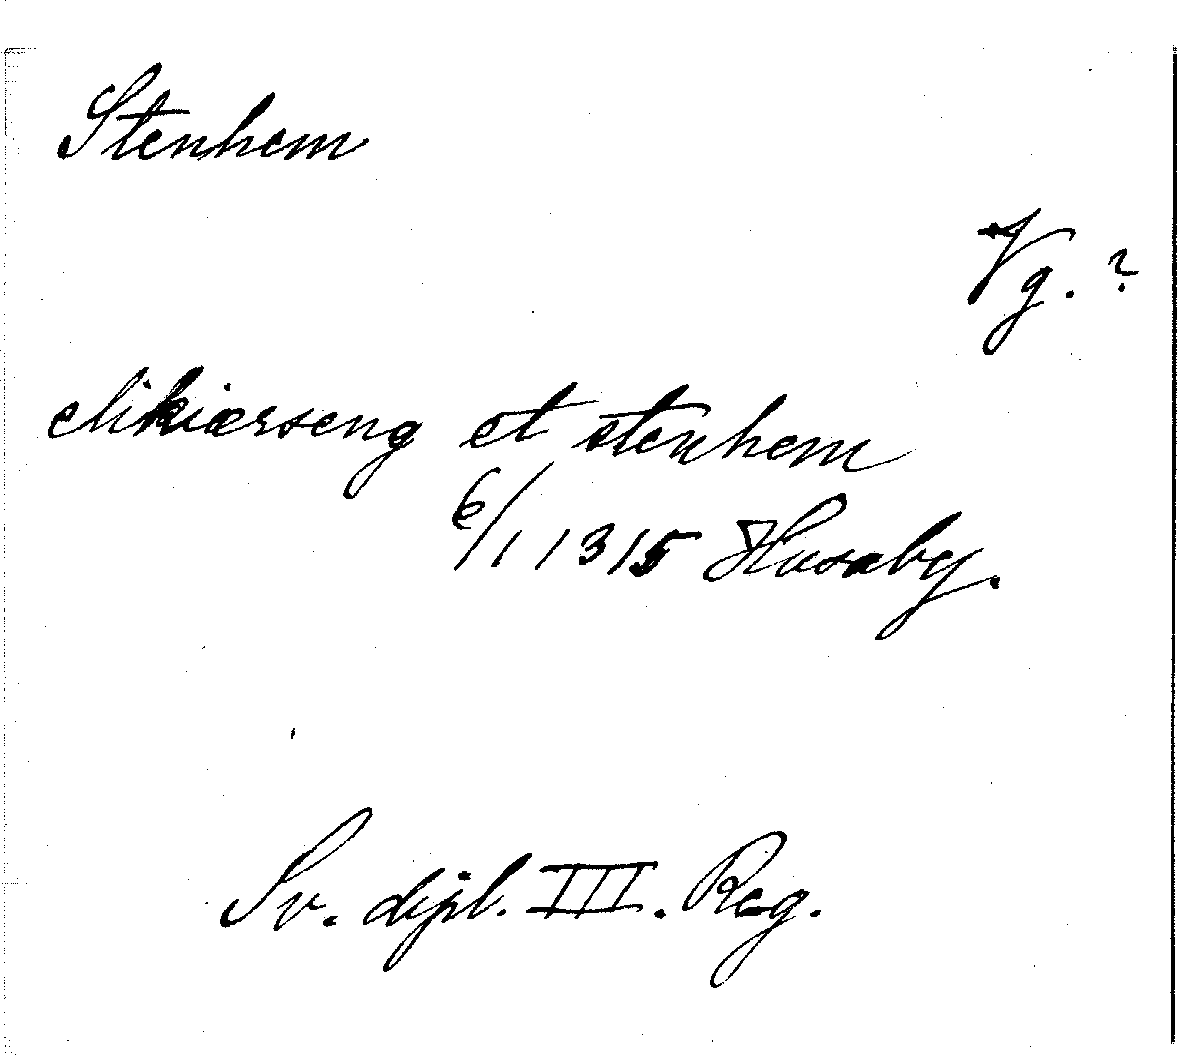 Stenhem
Vg. ?
elikiærseng et stenhem
6/1 1315 Husaby.
Sv. dipl. III. Reg.